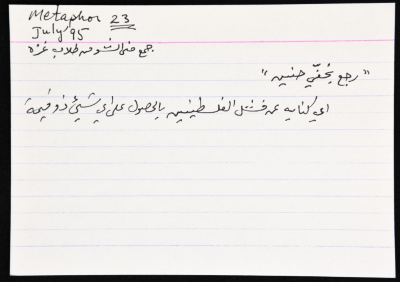 Metaphor 23
July '95
جمع فني الشو من طلاب غزة
"رجع بخفّي حنين"
اي كنايه عن فشل الفلسطينيين بالحصول على اي شيئ ذو قيمة